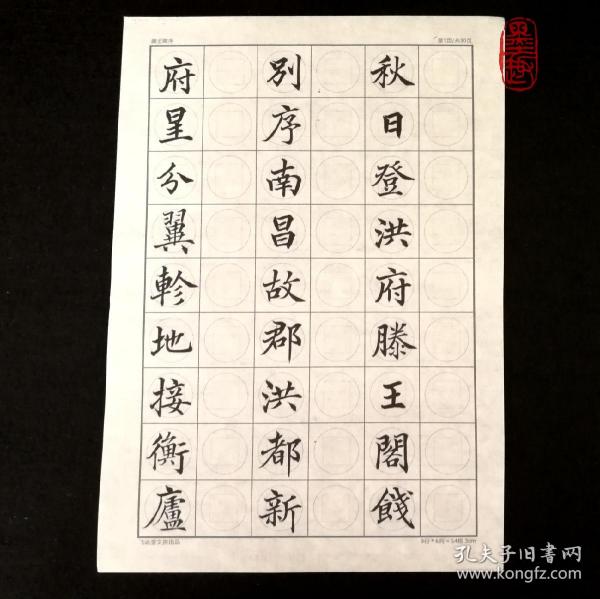 秋日登洪府滕王閣餞
別序南昌故郡洪都新
府星分翼軫地接衡廬
滕王閣序
墨趣
孔夫子旧書网
www.kongfz.com